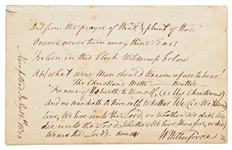 And from the prayer of Want, & plaint of Woe
O never, never turn away thine Ear!
Forlorn in this bleak Wilderness below
Ah! what were Man, should Heaven refuse to hear!
The Christian's Motto
For none of us liveth to himself, (i.e. Us Christians)
and no man dieth to himself. Whether We live
live, We live unto the Lord: or whether We die, We
die unto the Lord: Whether We live therefore, or die,
We are the Lord's
W Wilberforce